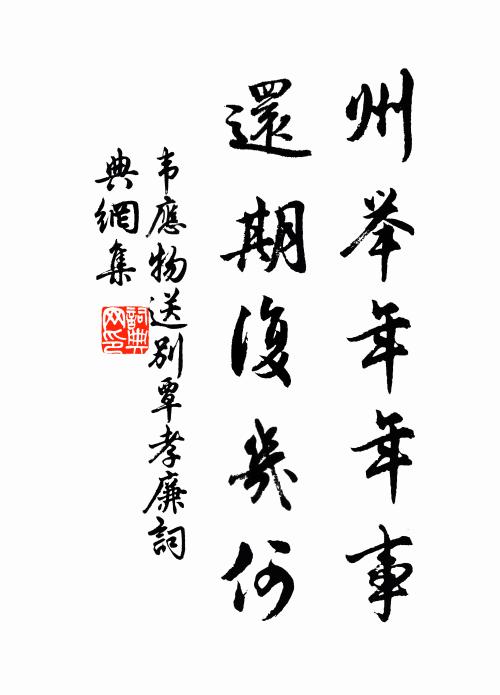 州举年年事
還期復幾何
韦應物送别覃孝廉詞
典網集
詞典网印